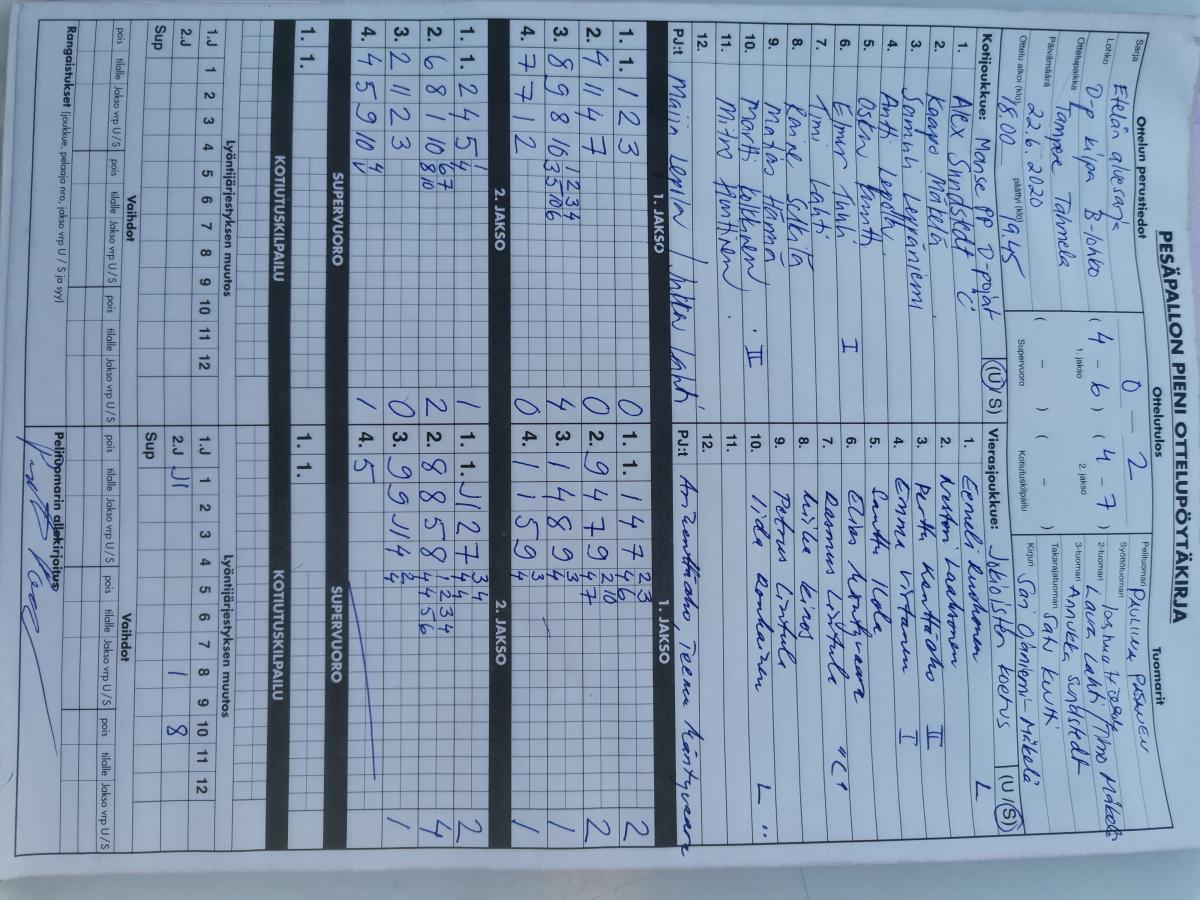 PESÄPALLON PIENI OTTELUPÖYTÄKIRJA
Ottelun perustiedot
Sarja Etelän aluesarja
Lohko D-p kilpa B-lohko
Ottelupaikka Tampere Tahmela
Päivämäärä 22.6.2020
Ottelu alkoi (klo) 18.00 päättyi (klo) 19.45
Ottelutulos
0 – 2
( 4 – 6 ) ( 4 – 7 )
1. jakso 2. jakso
( – ) ( – )
Supervuoro Kotiutuskilpailu
Tuomarit
Pelituomari PAULIINA PASANEN
Syöttötuomari
2-tuomari Laura Lahti / Timo Mäkelä
3-tuomari Annukka Sundstedt
Takarajatuomari Satu Kuitti
Kirjuri Sari Ojaniemi-Mäkelä
Kotijoukkue: Manse PP D-pojat (U / S)
1. Alex Sundstedt C
2. Kaapo Mäkelä
3. Leppäniemi
4. Antti Leppälä
5. Oskari
6. Elmur I
7. Timi Lahti
8.
9. Matias
10. Martti II
11. Mitro Hinttinen
12.
PJ:t Maiju Leppälä / Jukka Lahti
Vierasjoukkue: Jokioisten Koetus (U / S)
1. Eemeli Ruohonen L
2. Laaksonen
3. Perttu Kenttäaho III
4. Emma Virtanen I
5. Santtu Ilola
6. Elias Mäntyvaara
7. Rasmus Lintula "C"
8. Miika Kinos
9. Petrus Lintula
10. Iida Ronkainen L
11.
12.
PJ:t Anu Kenttäaho, Teemu Mäntyvaara
1. JAKSO
1. 1. 1 2 3 0
2. 4 11 4 7 0
3. 8 9 8 10 1 2 3 4 3 5 10 6 4
4. 7 7 1 2 0
1. JAKSO
1. 1. 1 4 7 2 3 4 6 2
2. 9 4 7 9 2 10 4 7 2
3. 1 4 8 9 3 4 1
4. 1 1 5 9 3 4 1
2. JAKSO
1. 1. 2 4 5 1 4 1
2. 6 8 1 10 6 7 8 10 2
3. 2 11 2 3 0
4. 4 5 9 10 4 V 1
2. JAKSO
1. 1. J1 2 7 3 4 4 4 2
2. 8 8 5 8 1 2 3 4 4 4 5 6 4
3. 9 9 J1 4 2 4 1
4. 5
SUPERVUORO
SUPERVUORO
1. 1.
1. 1.
KOTIUTUSKILPAILU
KOTIUTUSKILPAILU
Lyöntijärjestyksen muutos
1 2 3 4 5 6 7 8 9 10 11 12
1.J
2.J
Sup
Lyöntijärjestyksen muutos
1 2 3 4 5 6 7 8 9 10 11 12
1.J
2.J J1 1 8
Sup
Vaihdot
pois tilalle Jakso vrp U/S pois tilalle Jakso vrp U/S pois tilalle Jakso vrp U/S
Vaihdot
pois tilalle Jakso vrp U/S pois tilalle Jakso vrp U/S pois tilalle Jakso vrp U/S
Rangaistukset (joukkue, pelaaja nro, jakso vrp U / S ja syy)
Pelituomarin allekirjoitus